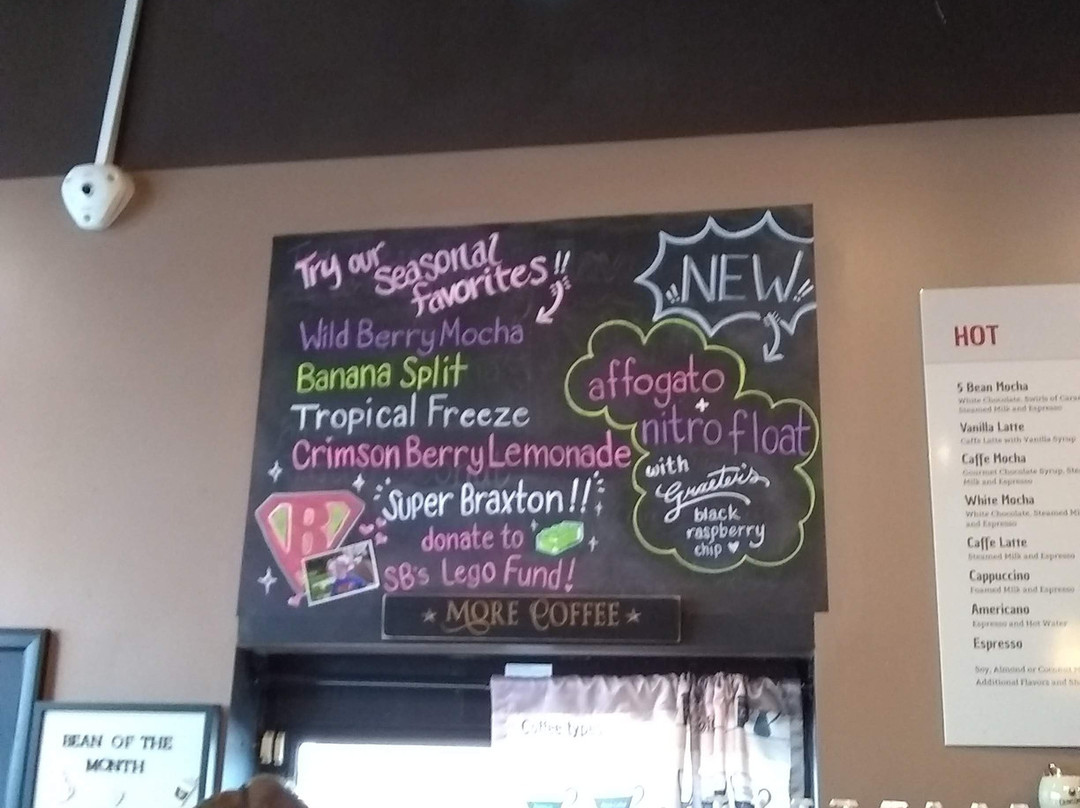 Try our
seasonal
favorites!!
Wild Berry Mocha
Banana Split
Tropical Freeze
Crimson Berry Lemonade
B
Super Braxton!!
donate to
SB's Lego Fund!
!!NEW!!
affogato
+
nitro float
with
Graeter's
black
raspberry
chip
MORE COFFEE
Coffee types
BEAN OF THE
MONTH
HOT
5 Bean Mocha
White Chocolate, Swirls of
Steamed Milk and Espresso
Vanilla Latte
Caffe Latte with Vanilla Syrup
Caffe Mocha
Gourmet Chocolate Syrup,
Milk and Espresso
White Mocha
White Chocolate, Steamed
and Espresso
Caffe Latte
Steamed Milk and Espresso
Cappuccino
Foamed Milk and Espresso
Americano
Espresso and Hot Water
Espresso
Soy, Almond or Coconut
Additional Flavors and